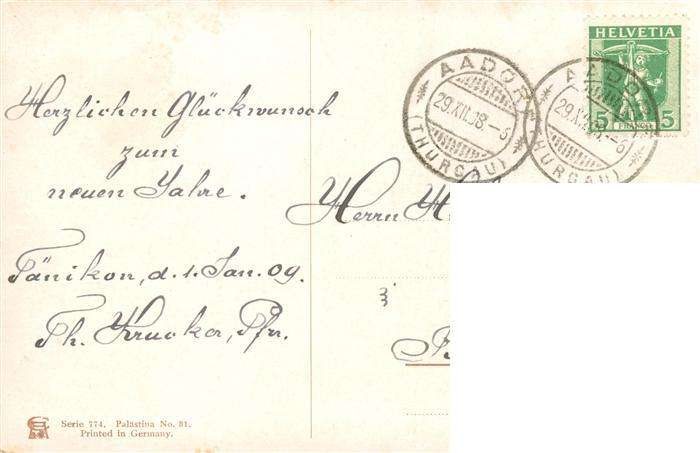 Herzlichen Glückwunsch
zum
neuen Jahre.
Tänikon, d. 1. Jan. 09.
Th. Krucker, Pfr.
Serie 774. Palästina No. 81.
Printed in Germany.
AADORF
29.XII.08.-6
(THURGAU)
AADORF
29.XII.08.-6
(THURGAU)
HELVETIA
5 FRANCO 5
Herrn